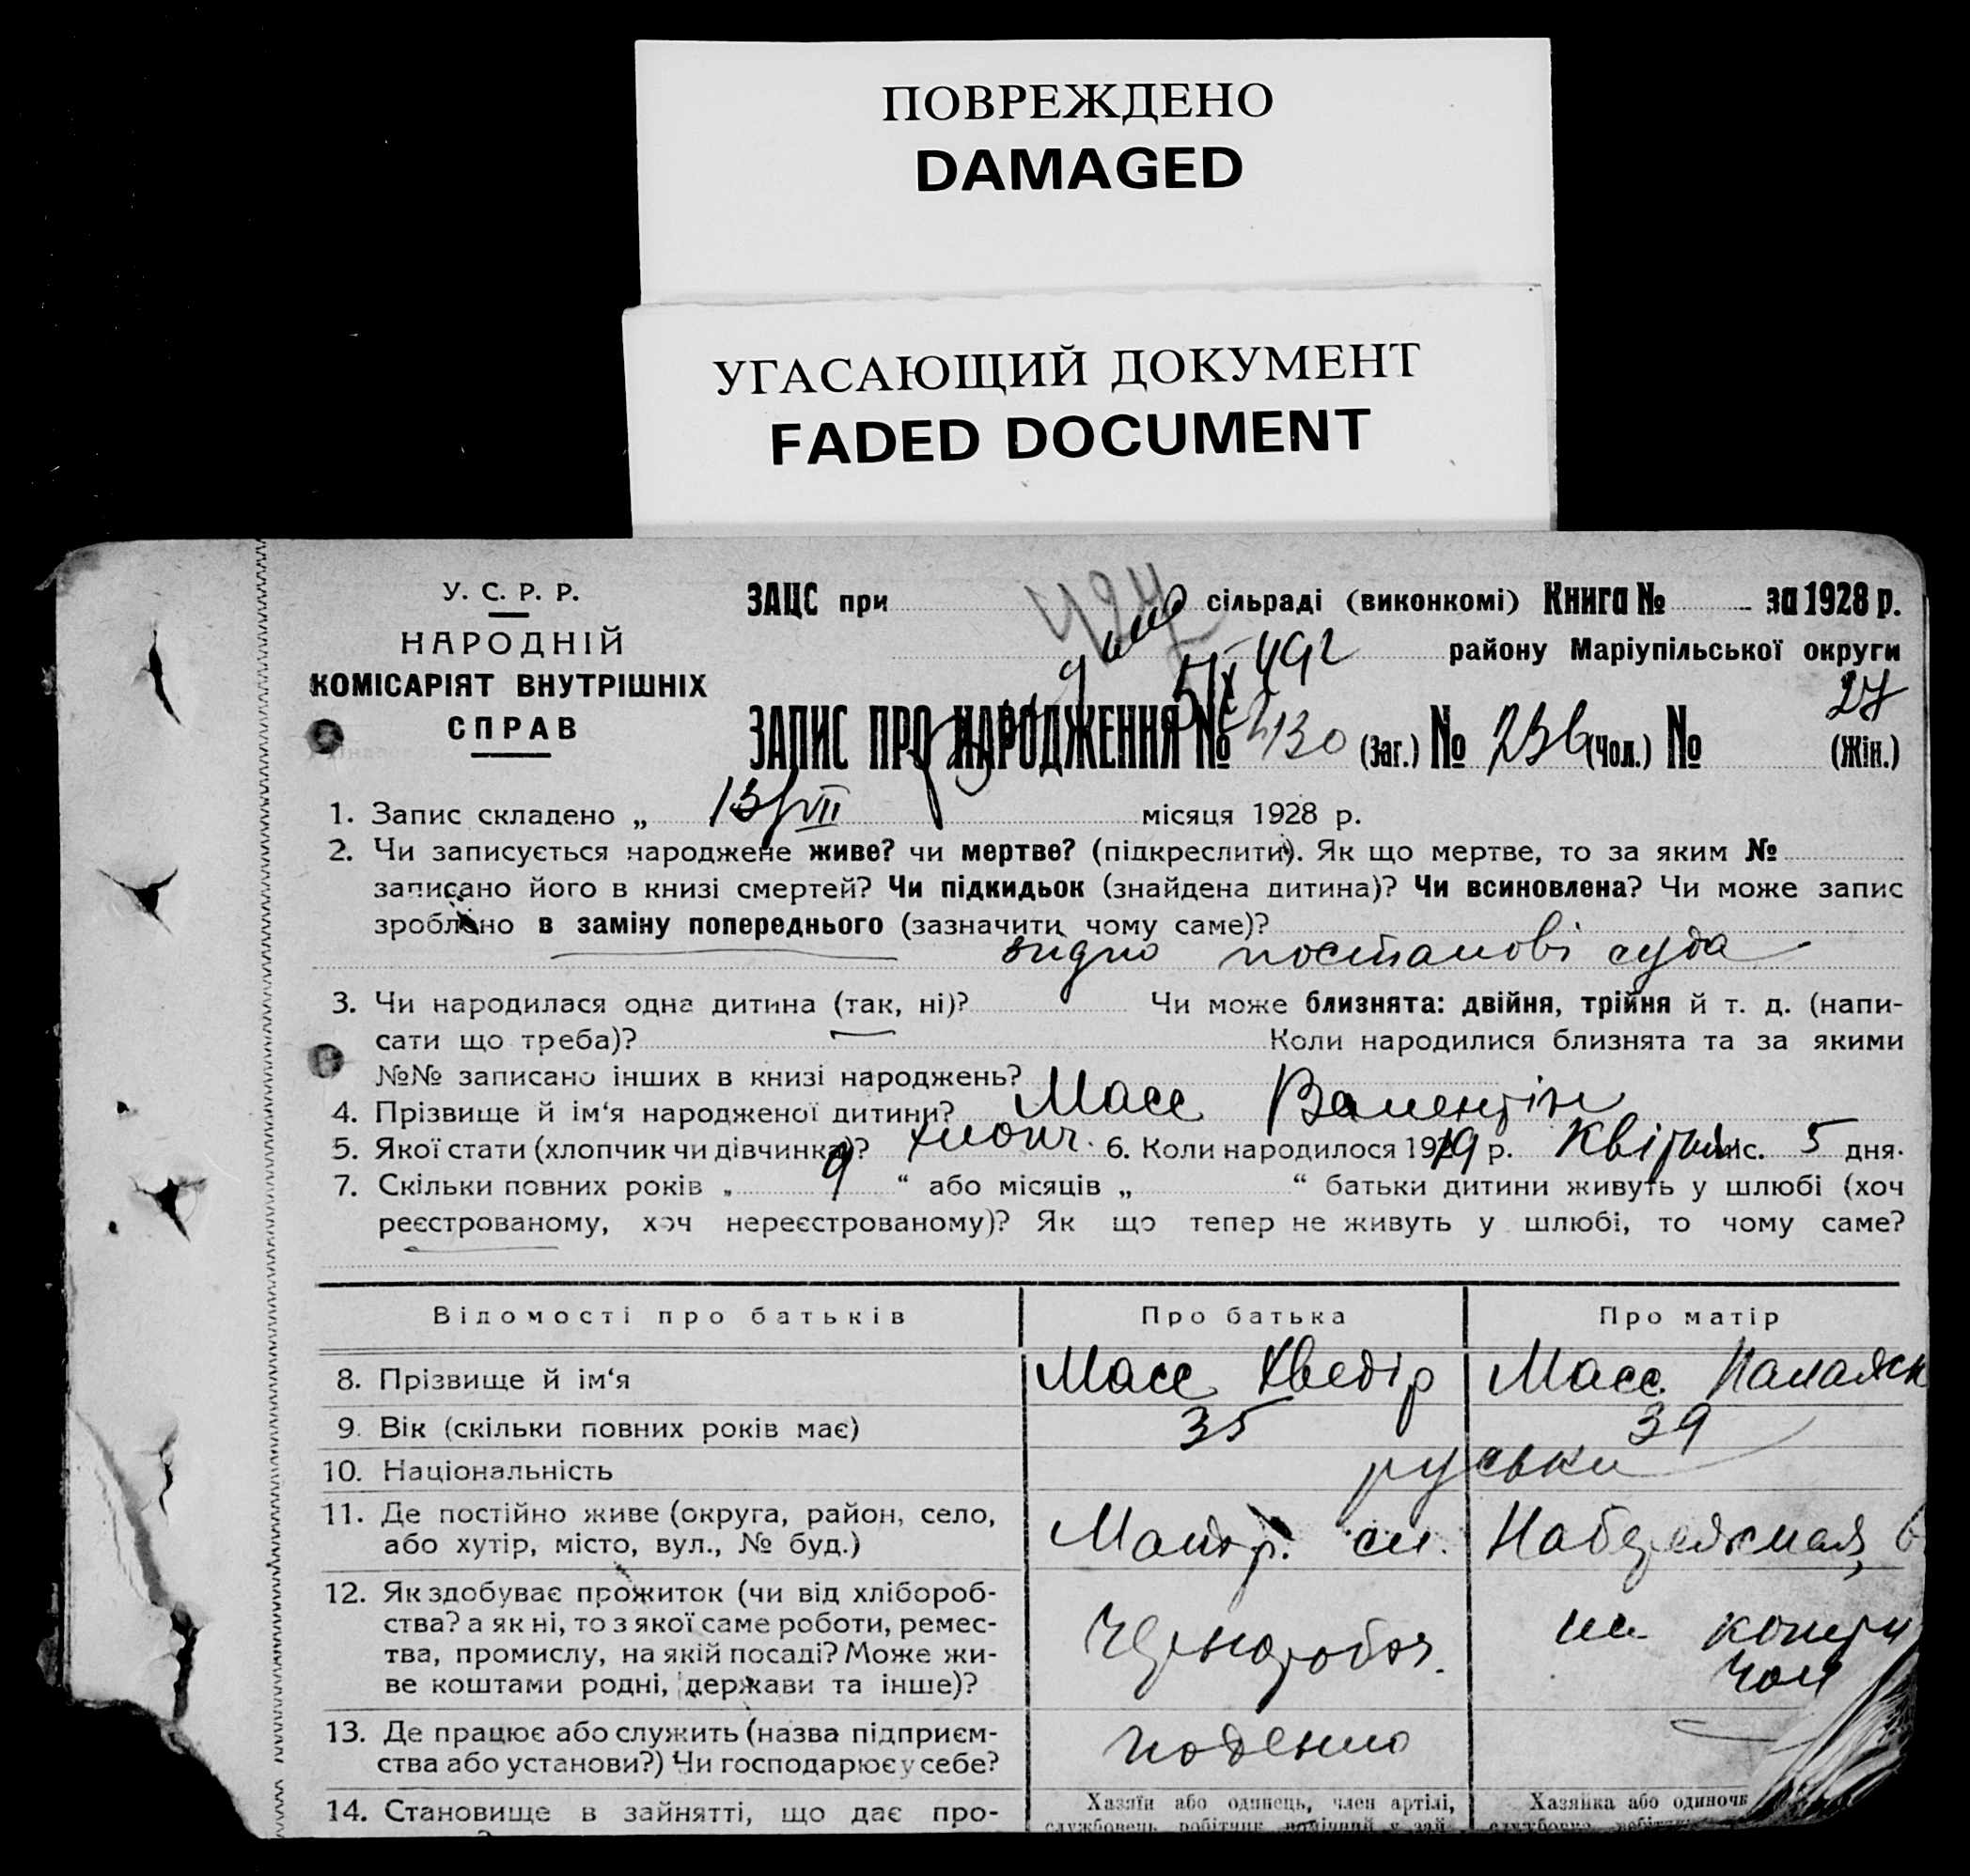 ПОВРЕЖДЕНО
DAMAGED
УГАСАЮЩИЙ ДОКУМЕНТ
FADED DOCUMENT
У. С. Р. Р.
НАРОДНІЙ
КОМІСАРІЯТ ВНУТРІШНІХ
СПРАВ
ЗАЦС при сільраді (виконкомі) Книга № за 1928 р.
492 району Маріупільської округи
27
ЗАПИС ПРО НАРОДЖЕННЯ № 430 (Заг.) № 236 (Чол.) № (Жін.)
1. Запис складено „ 13/VII місяця 1928 р.
2. Чи записується народжене живе? чи мертве? (підкреслити). Як що мертве, то за яким №
записано його в книзі смертей? Чи підкидьок (знайдена дитина)? Чи всиновлена? Чи може запис
зроблено в заміну попереднього (зазначити чому саме)?
зидно постанові суда
3. Чи народилася одна дитина (так, ні)? Чи може близнята: двійня, трійня й т. д. (напи-
сати що треба)? Коли народилися близнята та за якими
№№ записано інших в книзі народжень?
4. Прізвище й ім‘я народженої дитини? Масс Валентін
5. Якої стати (хлопчик чи дівчинка)? хлопч. 6. Коли народилося 1919 р. Квітня міс. 5 дня.
7. Скільки повних років „ 9 “ або місяців „ “ батьки дитини живуть у шлюбі (хоч
реєстрованому, хоч нереєстрованому)? Як що тепер не живуть у шлюбі, то чому саме?
Відомості про батьків Про батька Про матір
8. Прізвище й ім‘я Масс Хведір Масс
9. Вік (скільки повних років має) 35 39
10. Національність руськи
11. Де постійно живе (округа, район, село,
або хутір, місто, вул., № буд.) Набережная,
12. Як здобуває прожиток (чи від хлібороб-
ства? а як ні, то з якої саме роботи, ремес-
тва, промислу, на якій посаді? Може жи-
ве коштами родні, держави та інше)? Чернороботч.
13. Де працює або служить (назва підприєм-
ства або установи?) Чи господарює у себе? поденно
14. Становище в зайнятті, що дає про- Хазяїн або одинець, член артілі, Хазяйка або одиноч
службовець, робітник, помічний у зай